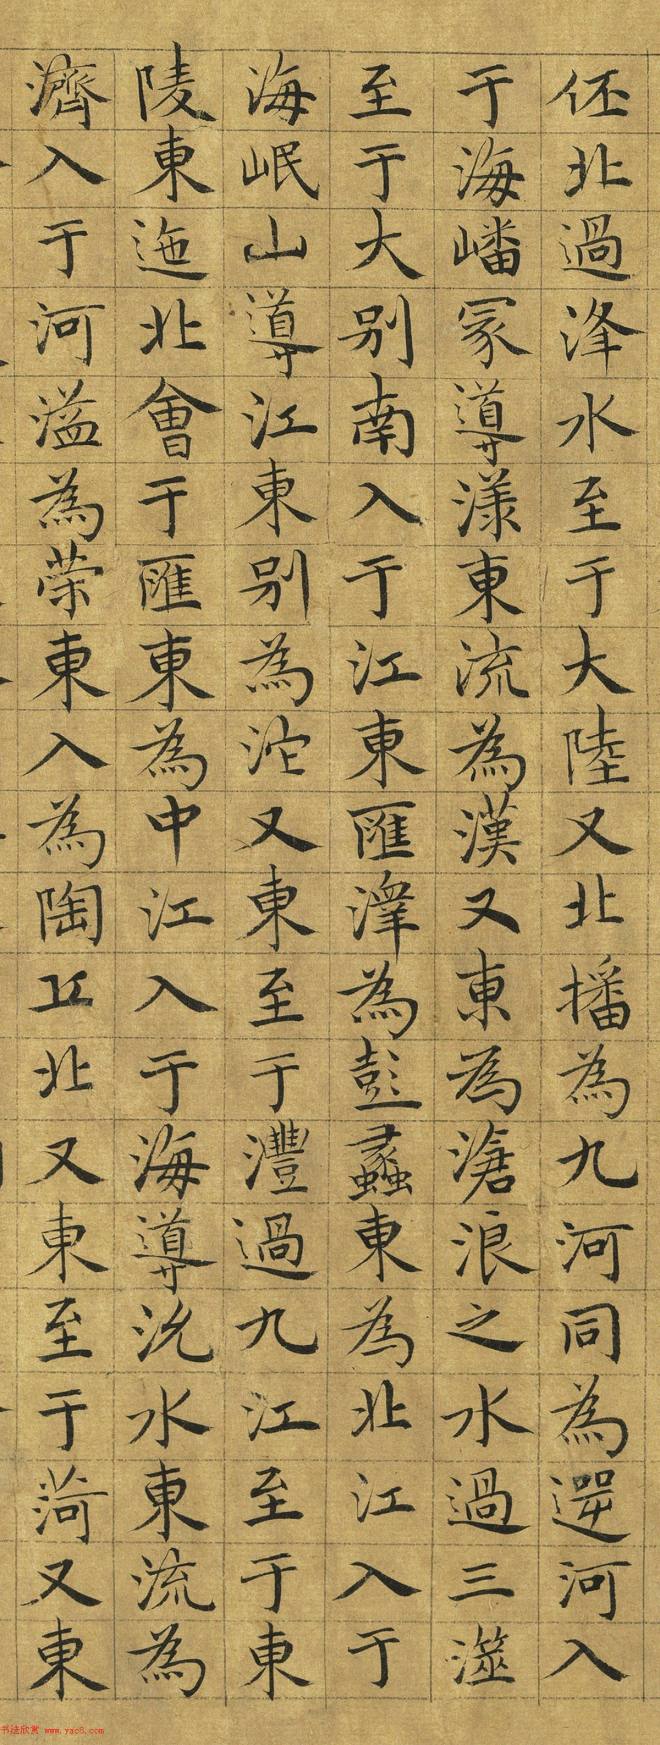 伾北過洚水至于大陸又北播為九河同為逆河入
于海嶓冢導漾東流為漢又東為滄浪之水過三澨
至于大别南入于江東匯澤為彭蠡東為北江入于
海岷山導江東别為沱又東至于灃過九江至于東
陵東迤北會于匯東為中江入于海導沇水東流為
濟入于河溢為荣東入為陶丘北又東至于菏又東
书法欣赏 www.yac8.com